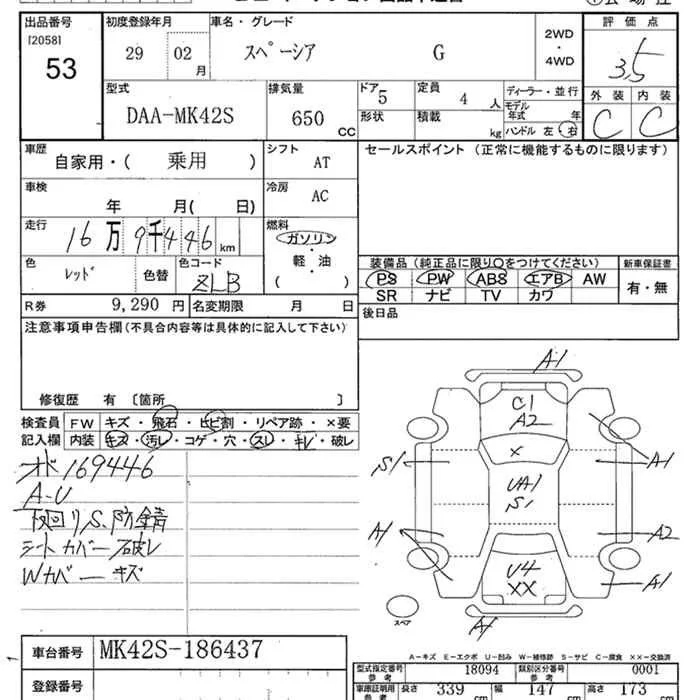 出品番号 初度登録年月 車名・グレード 評価点
[2058] 29 02 月 スペーシア G 2WD・4WD 3.5
53
型式 排気量 ドア 5 定員 4 人 ディーラー・並行 外装 内装
DAA-MK42S 650 CC 形状 積載 kg モデル年式 年 C C
ハンドル 左 右
車歴 自家用・( 乗用 ) シフト AT セールスポイント (正常に機能するものに限ります)
車検 年 月( 日) 冷房 AC
走行 16万9千446 km 燃料 ガソリン・軽・油 ( )
色 レッド 色替 色コード ZLB
装備品 (純正品に限り○をつけてください) 新車保証書
PS PW ABS エアB AW 有・無
SR ナビ TV カワ
R券 9,290 円 名変期限 月 日 後日品
注意事項申告欄 (不具合内容等は具体的に記入して下さい)
修復歴 有 〔箇所 〕
検査員 FW キズ・飛石・ヒビ割・リペア跡・×要
記入欄 内装 キズ・汚レ・コゲ・穴・スレ・キレ・破レ
オド169446
A-U
下回リS.防錆
シートカバー破レ
Wカバーキズ
A1
C1
A2
×
S1 A1
UA1
S1
A1 A2
U4
XX A1
A1
スペア
A-キズ E-エクボ U-凹み W-補修跡 S-サビ C-腐食 ××-交換済
車台番号 MK42S-186437
型式指定番号 参考 18094 類別区分番号 参考 0001
登録番号
車庫証明用 参考 長さ 339 cm 幅 147 cm 高さ 173 cm